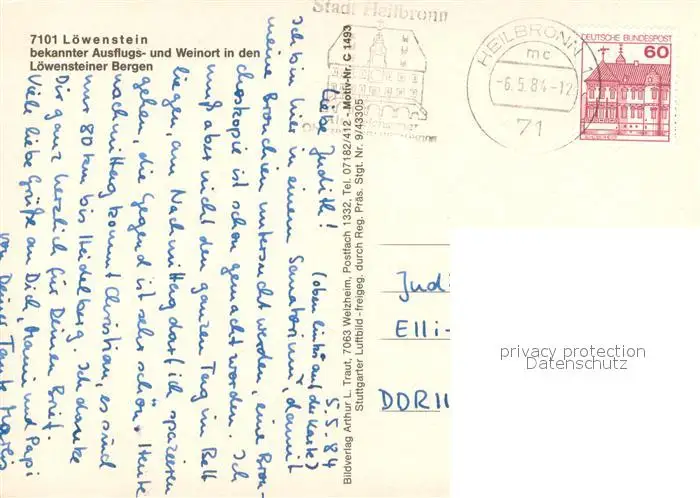 7101 Löwenstein
bekannter Ausflugs- und Weinort in den
Löwensteiner Bergen
Stadt Heilbronn
HEILBRONN 1
mc
-6.5.84-12
71
DEUTSCHE BUNDESPOST
60
5.5.84
Liebe Judith! (oben links auf der Karte)
Ich bin hier in einem Sanatorium, damit
meine Bronchien untersucht werden, eine Bron-
choskopie ist schon gemacht worden. Ich
muß aber nicht den ganzen Tag im Bett
liegen, am Nachmittag darf ich spazieren
gehen, die Gegend ist sehr schön. Heute
nachmittag kommt Christian, es sind
nur 80 km bis Heidelberg. Ich danke
Dir ganz herzlich für Deinen Brief.
Viele liebe Grüße an Dich, Mami und Papi
von Deiner Tante
Bildverlag Arthur L. Traut, 7063 Welzheim, Postfach 1332, Tel. 07182/412 - Motiv-Nr. C 1493
Stuttgarter Luftbild - freigeg. durch Reg. Präs. Stgt. Nr. 9/43305
Judi
Elli-
privacy protection
Datenschutz